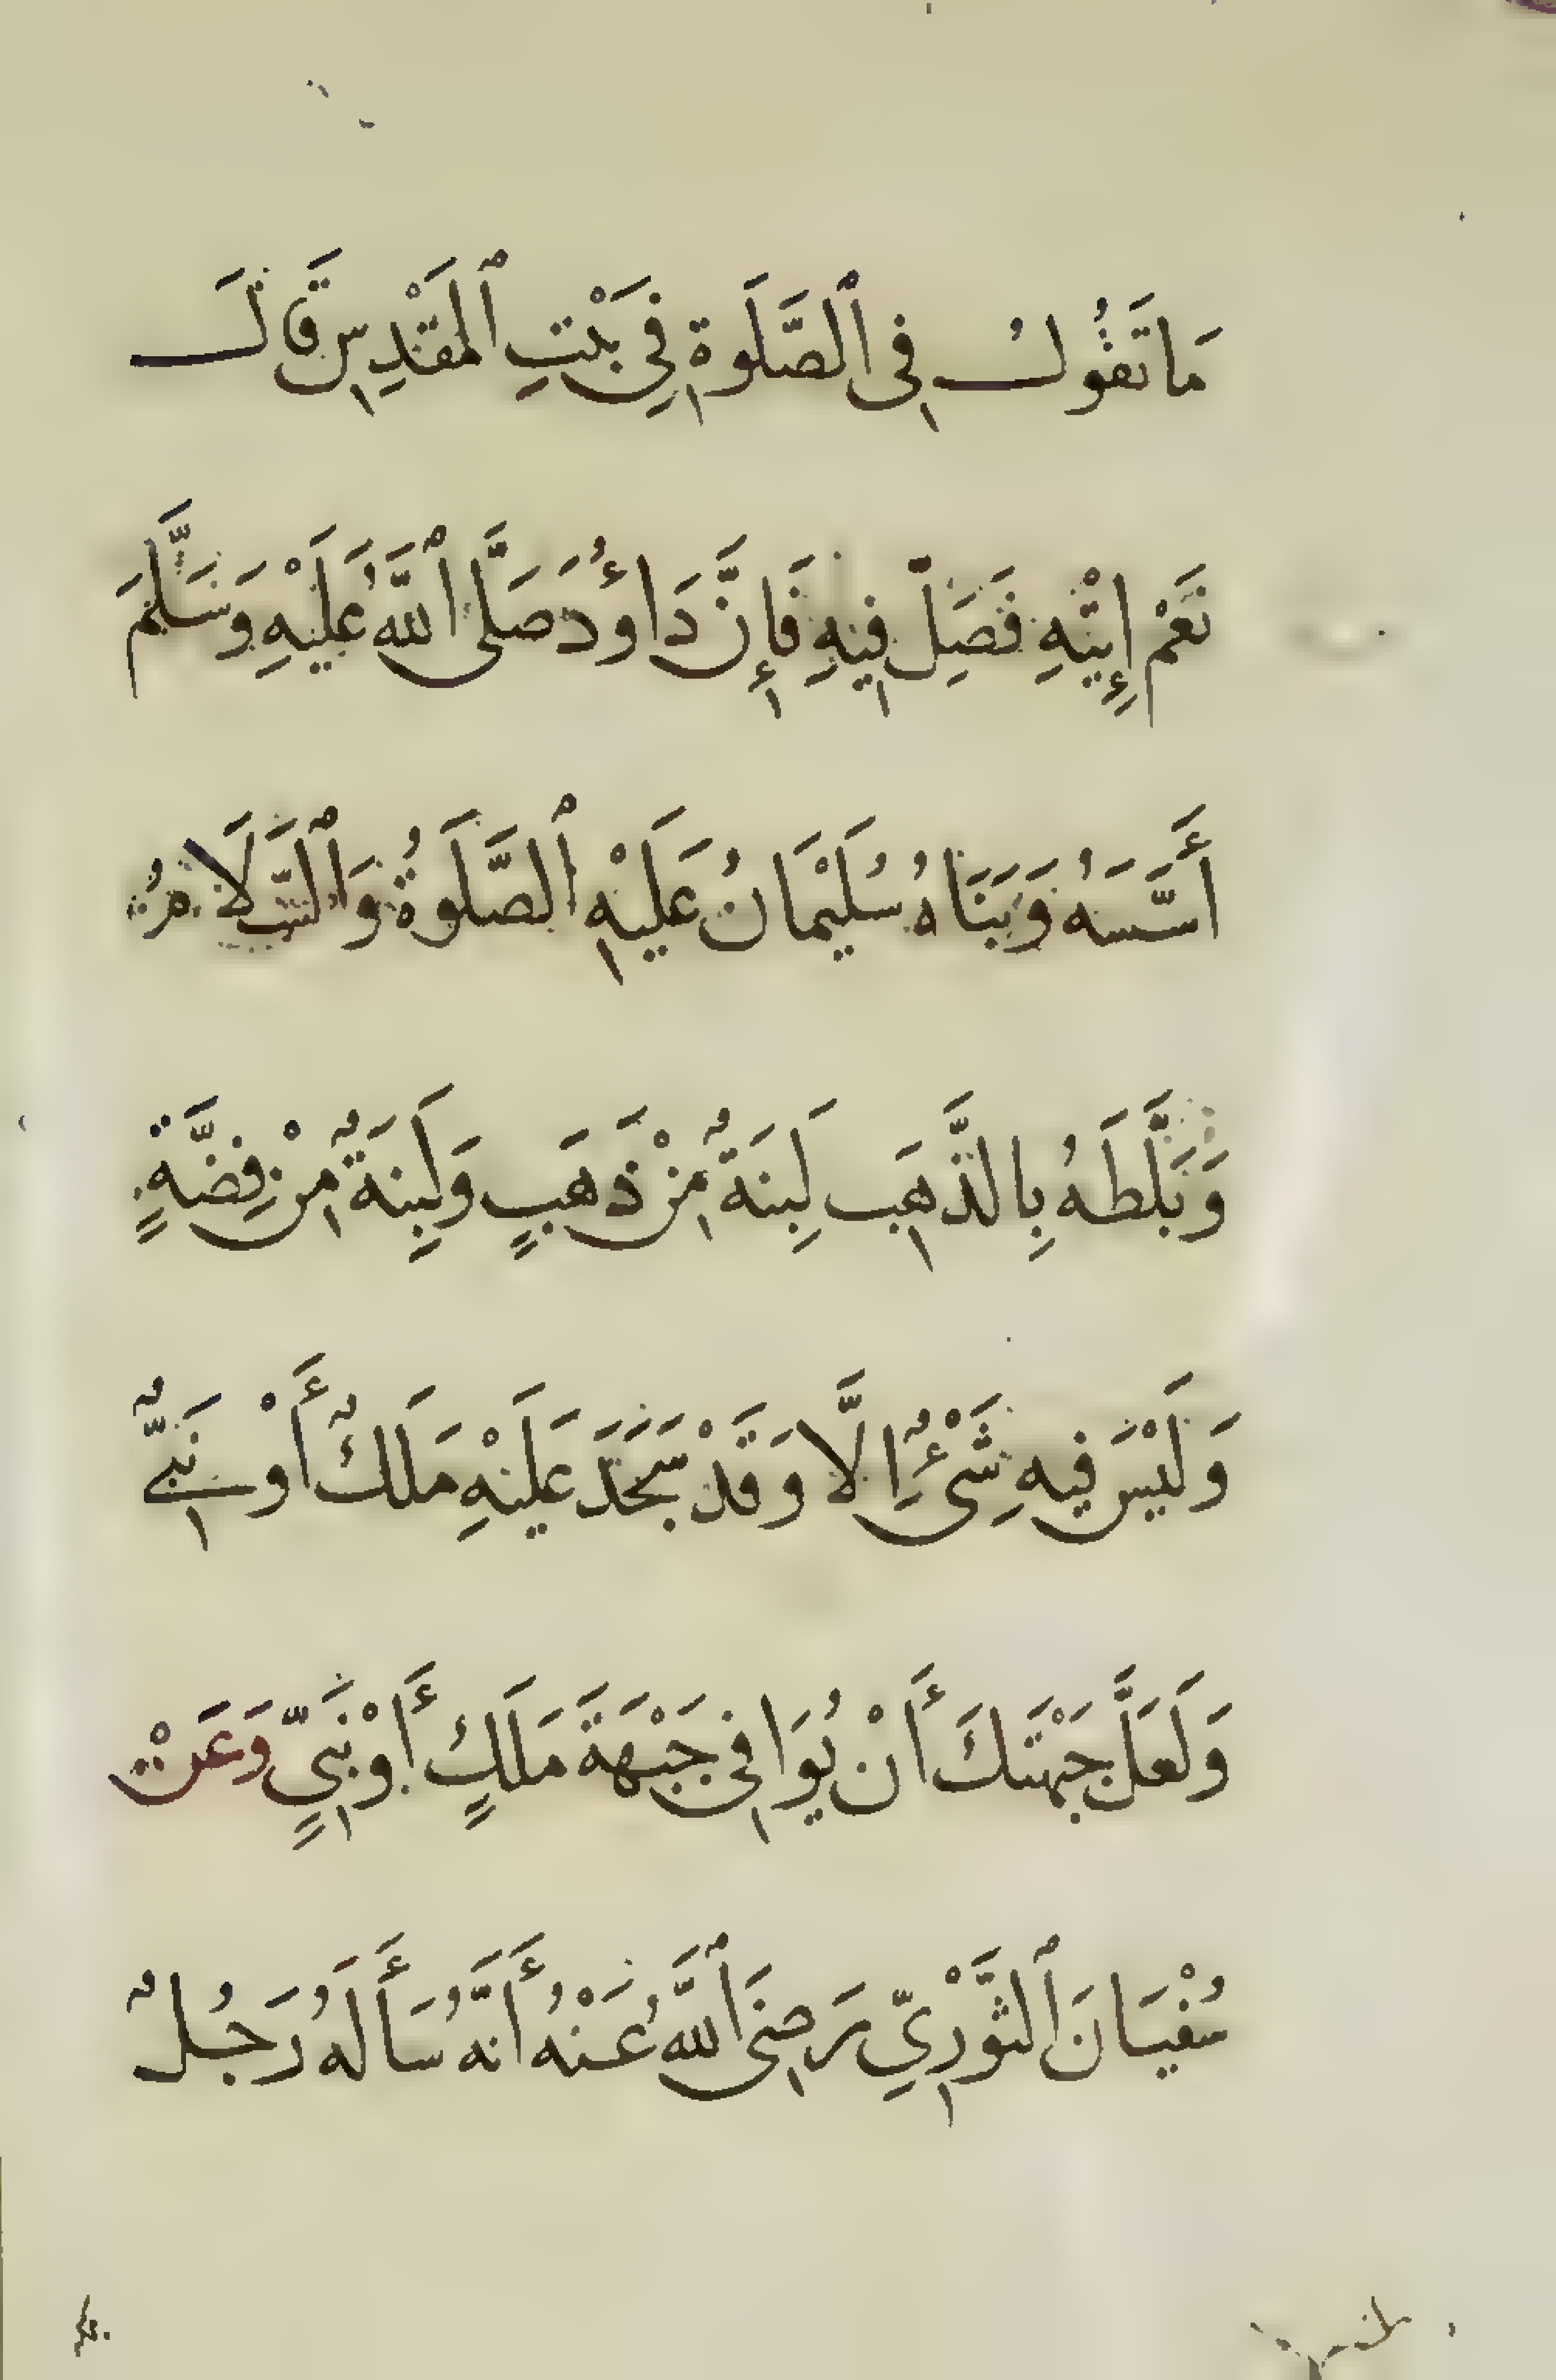 مَا تَقُولُ فِى ٱلصَّلَوةِ فِي بَيْتِ ٱلْمَقْدِسِ قَالَ
نَعَمْ إِيْتِهِ فَصَلِّ فِيهِ فَإِنَّ دَاؤُدَ صَلَّى ٱللَّهُ عَلَيْهِ وَسَلَّمَ
أَسَّسَهُ وَبَنَاهُ سُلَيْمَانُ عَلَيْهِ ٱلصَّلَوةُ وَٱلسَّلَامُ
وَبَلَّطَهُ بِالذَّهَبِ لَبِنَةٌ مِنْ ذَهَبٍ وَلَبِنَةٌ مِنْ فِضَّةٍ
وَلَيْسَ فِيهِ شَىْءٌ إِلَّا وَقَدْ سَجَدَ عَلَيْهِ مَلَكٌ أَوْ نَبِىٌّ
وَلَعَلَّ جَبْهَتَكَ أَنْ تُوَافِىَ جَبْهَةَ مَلَكٍ أَوْ نَبِىٍّ وَعَنْ
سُفْيَانَ ٱلثَّوْرِيِّ رَضِىَ ٱللَّهُ عَنْهُ أَنَّهُ سَأَلَهُ رَجُلٌ